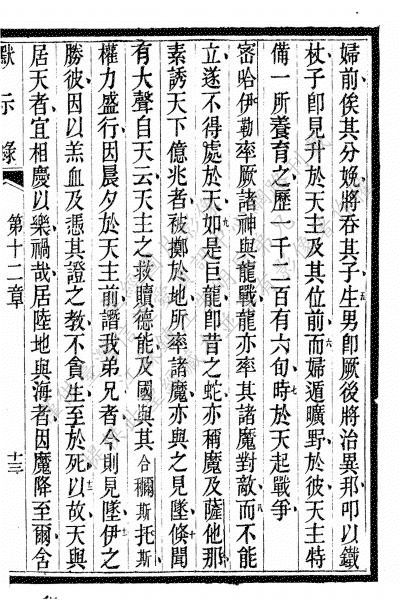 婦前俟其分娩將吞其子生男卽厥後將治異邦叩以鐵
杖子卽見升於天主及其位前而婦遁曠野於彼天主特
備一所養育之歷一千二百有六旬時於天起戰爭
密哈伊勒率厥諸神與龍戰龍亦率其諸魔對敵而不能
立遂不得處於天如是巨龍卽昔之蛇亦稱魔及薩他那
素誘天下億兆者被擲於地所率諸魔亦與之見墜倏聞
有大聲自天云天主之救贖德能及國與其合爾斯托斯
權力盛行因晨夕於天主前譖我弟兄者今則見墜伊之
勝彼因以羔血及憑其證之教不貪生至於死以故天與
居天者宜相慶以樂禍哉居陸地與海者因魔降至爾舍
默示錄
第十二章
十三
五
六
七
八
九
十
十一
十二